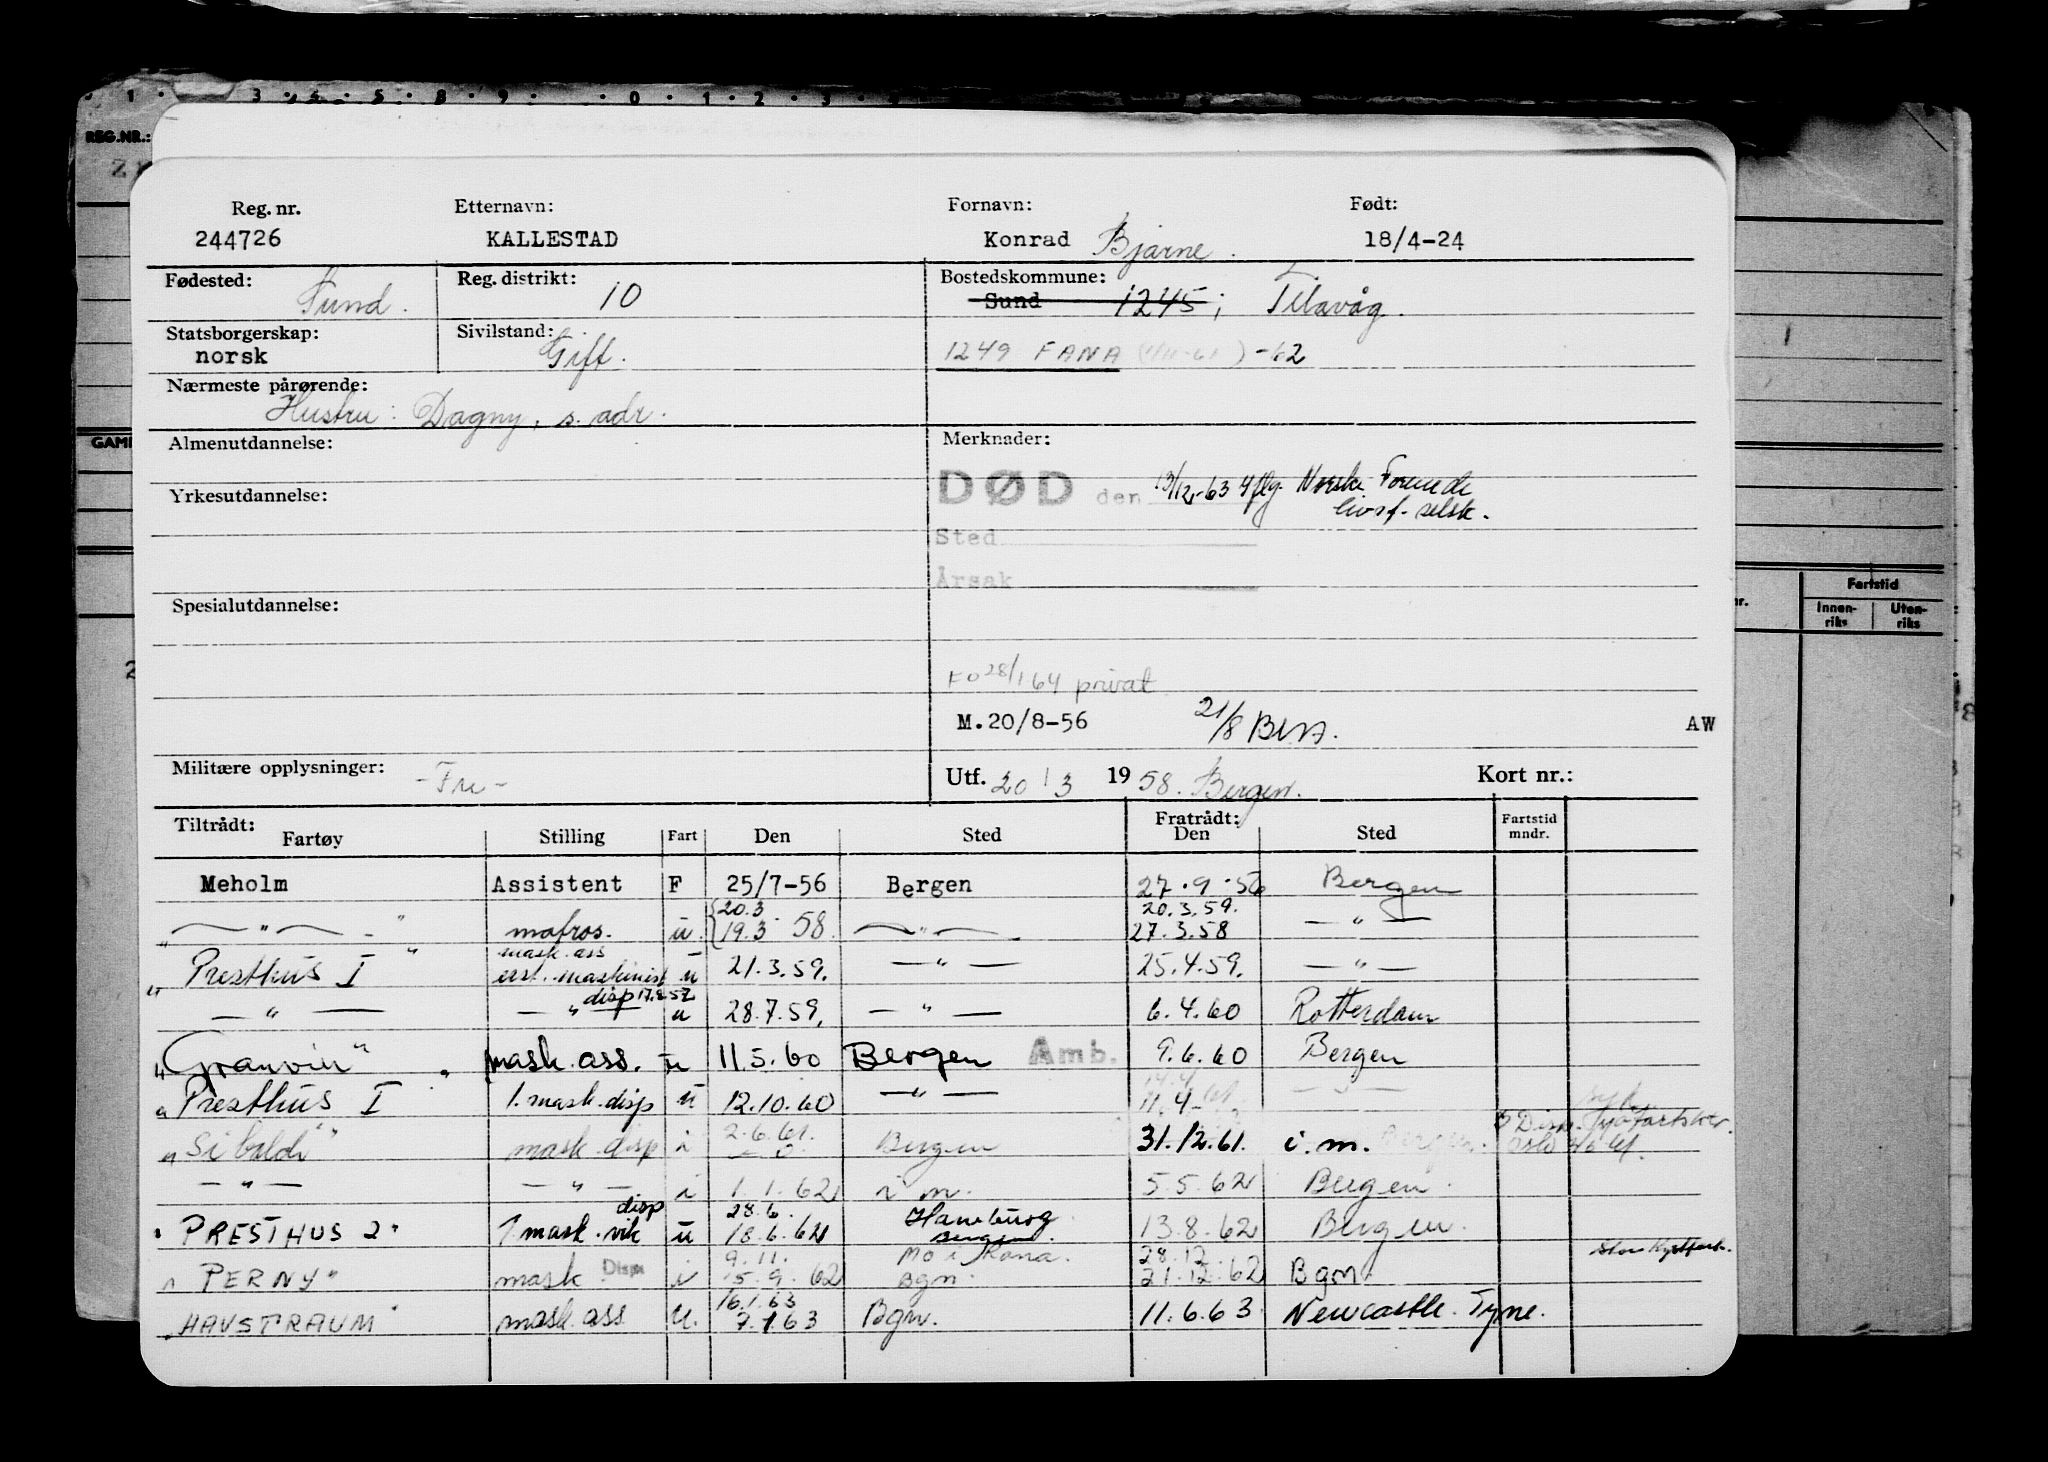 REG.NR.:
Reg. nr. Etternavn: Fornavn: Født:
244726 KALLESTAD Konrad Bjarne. 18/4-24
Fødested: Sund. Reg. distrikt: 10 Bostedskommune:
Sund 1245; Telavåg.
Statsborgerskap: norsk Sivilstand: Gift. 1249 FANA -62
Nærmeste pårørende:
Hustru: Dagny, s. adr.
GAML
Almenutdannelse: Merknader:
DØD den 13/12-63 iflg. Norske Forenede
livsf. selsk.
Yrkesutdannelse:
Sted
Årsak
Spesialutdannelse:
Fartstid
Innen-riks Uten-riks
28/1 64 privat
M.20/8-56 21/8 AW
Militære opplysninger: Utf. 20/3 1958. Bergen. Kort nr.:
Tiltrådt: Fratrådt: Fartstid mndr.
Fartøy Stilling Fart Den Sted Den Sted
Meholm Assistent F 25/7-56 Bergen 27.9.56 Bergen
20.3 20.3.59.
— " — " matros. u. 19.3 58. — " — 27.3.58 — " —
mask. ass
" Presthus I " maskinist u 21.3.59. — " — 25.4.59. — " —
disp
— " — — " — u 28.7.59, — " — 6.4.60 Rotterdam
"Granvin" mask. ass. u 11.5.60 Bergen Amb. 9.6.60 Bergen
"Presthus I 1. mask. disp u 12.10.60 — " — 11.4 — " —
" mask. disp i 2.6.61. Bergen 31.12.61. i.m.
— " — — " — i 1.1.62 i m. 5.5.62 Bergen.
disp 28.6. Hamburg
"PRESTHUS 2" 1 mask. vik u 18.6.62 Bergen. 13.8.62 Bergen.
9.11. Mo i Rana. 28.12
"PERNY" mask Disp i 15.9.62 Bgn. 21.12.62 Bgn
16.1.63
"HAVSTRAUM" mask. ass U. 7.1.63 Bgn. 11.6.63 Newcastle. Tyne.